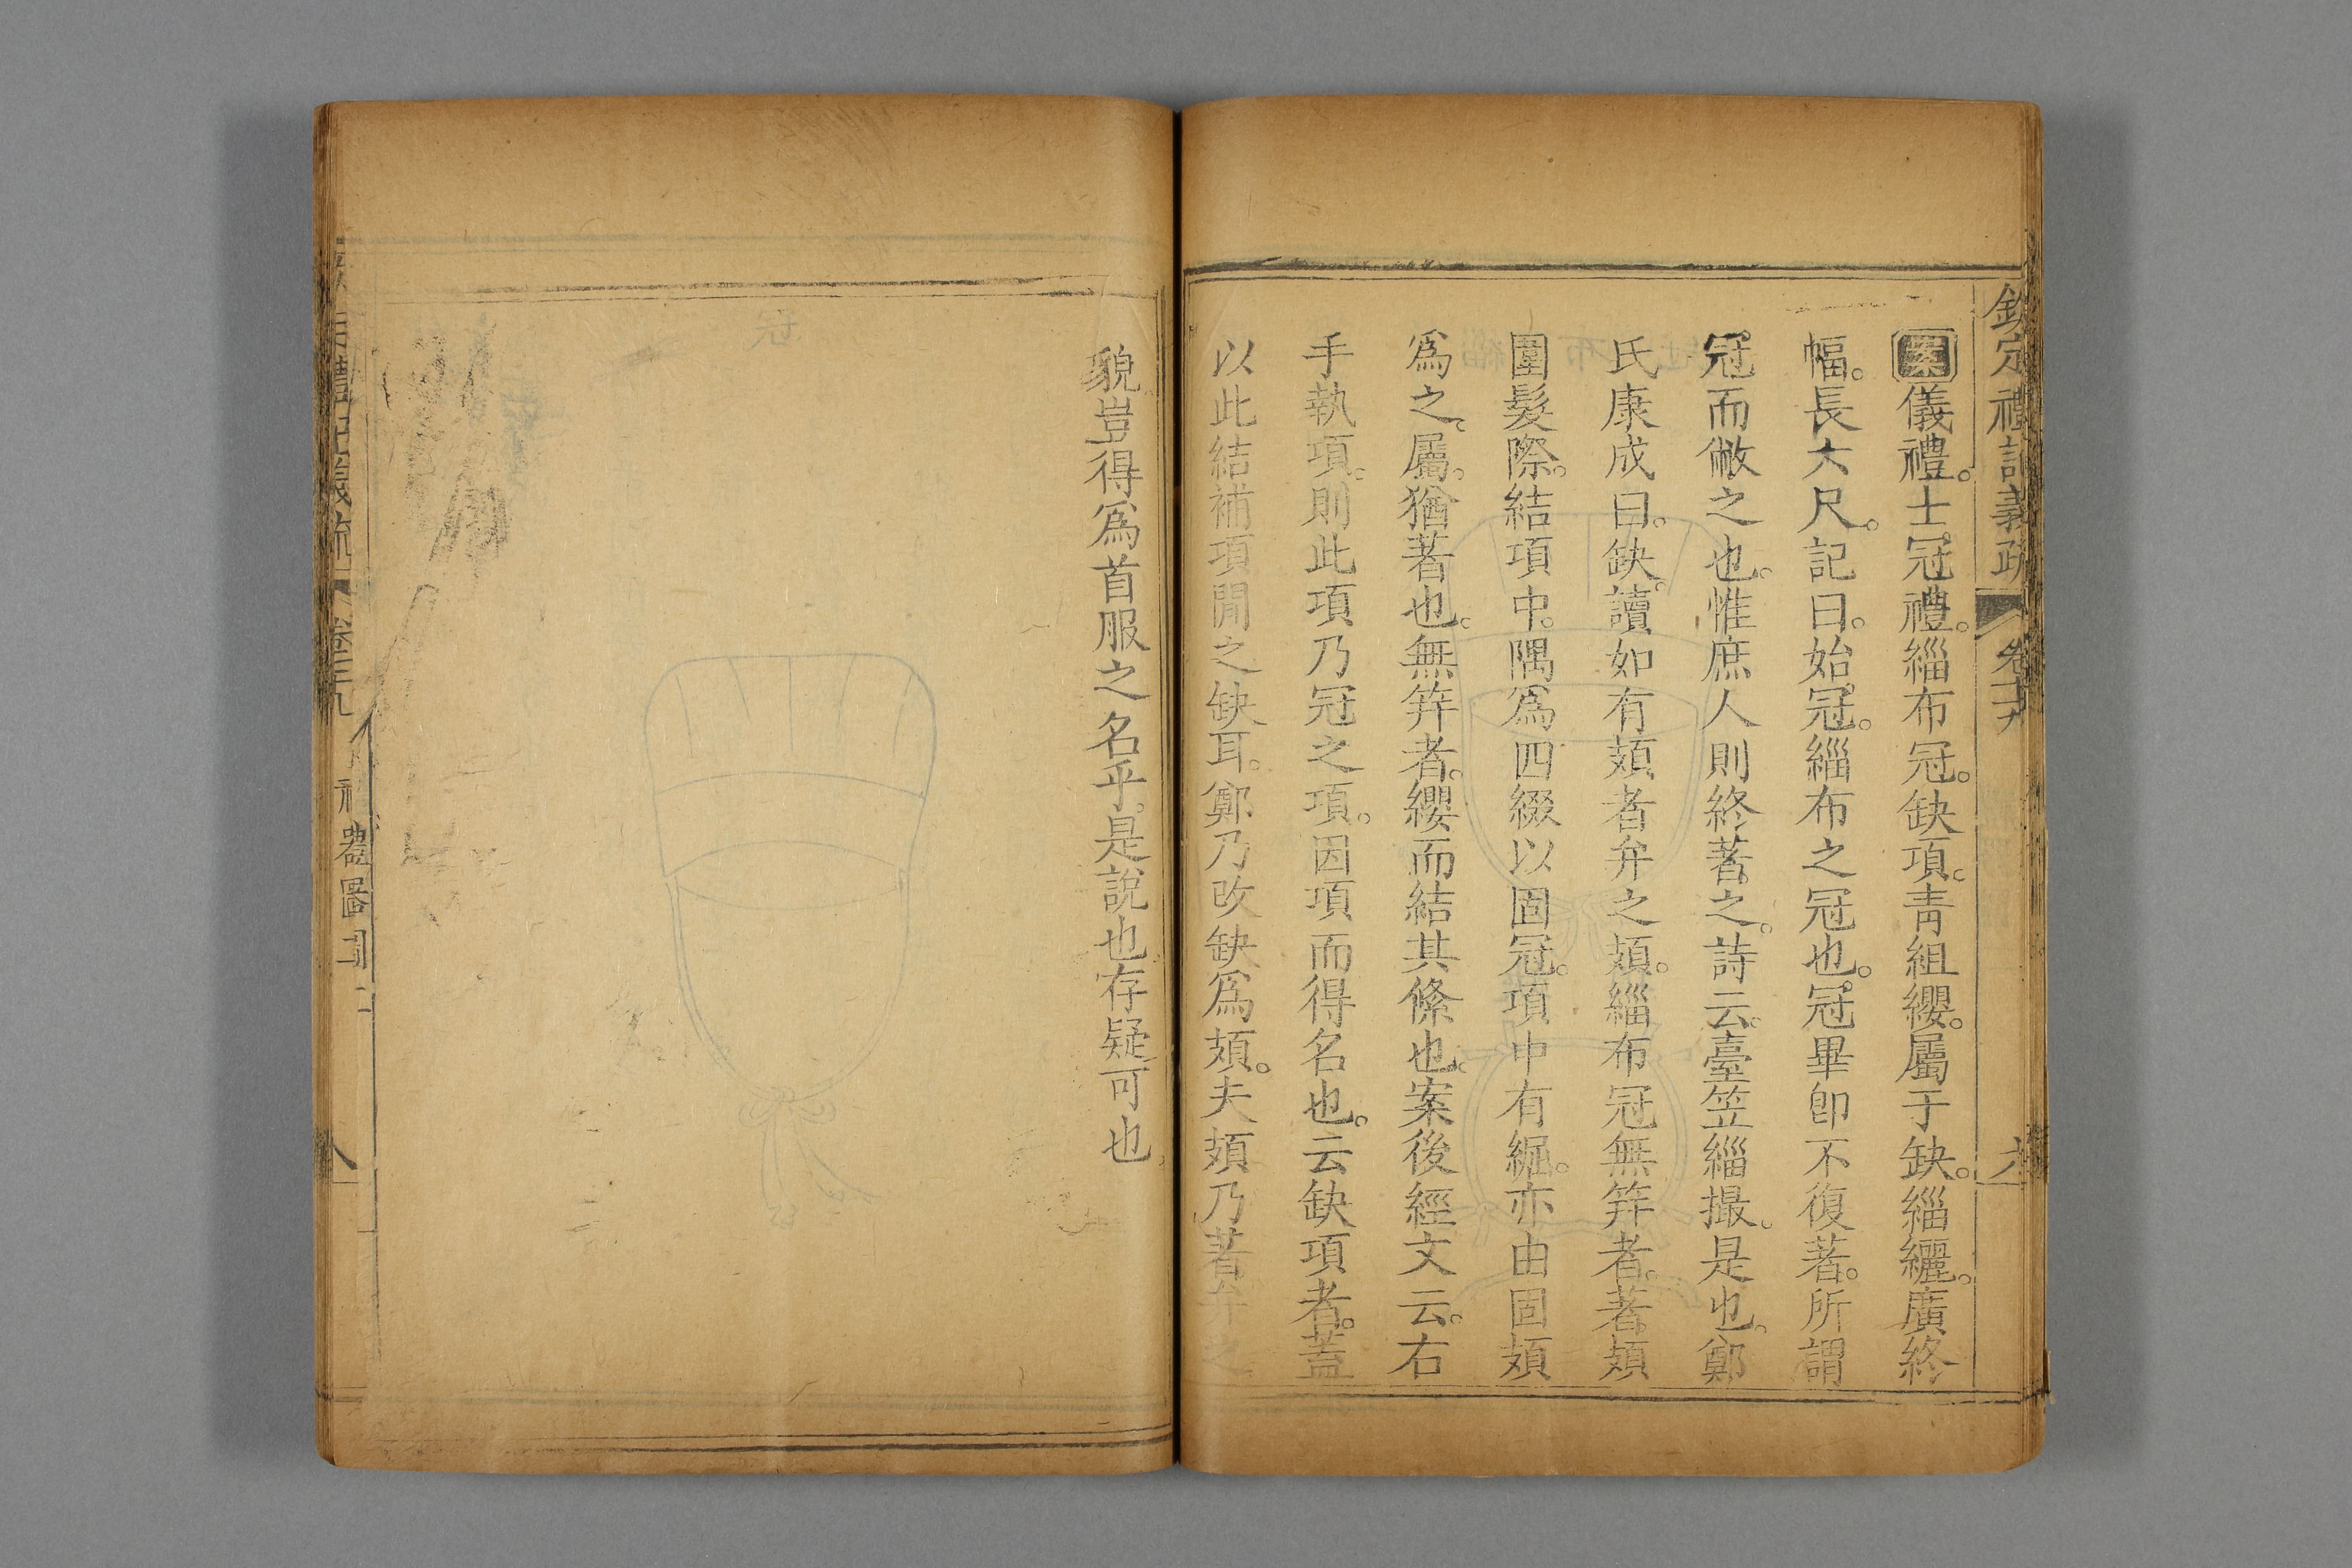 欽定禮記義疏 卷
案儀禮。士冠禮。緇布冠。缺項。青組纓。屬于缺。緇纚。廣終
幅。長六尺。記曰。始冠。緇布之冠也。冠畢卽不復著。所謂
冠而敝之也。惟庶人則終著之。詩云。臺笠緇撮。是也。鄭
氏康成曰。缺。讀如有頍者弁之頍。緇布冠無笄者。著頍
圍髮際。結項中。隅爲四綴以固冠。項中有𦀌。亦由固頍
爲之。屬。猶著也。無笄者。纓而結其絛也。案後經文云。右
手執項。則此項乃冠之項。因項而得名也。云缺項者。蓋
以此結補項閒之缺耳。鄭乃改缺爲頍。夫頍乃著弁之
貌豈得爲首服之名乎。是說也存疑可也
禮圖